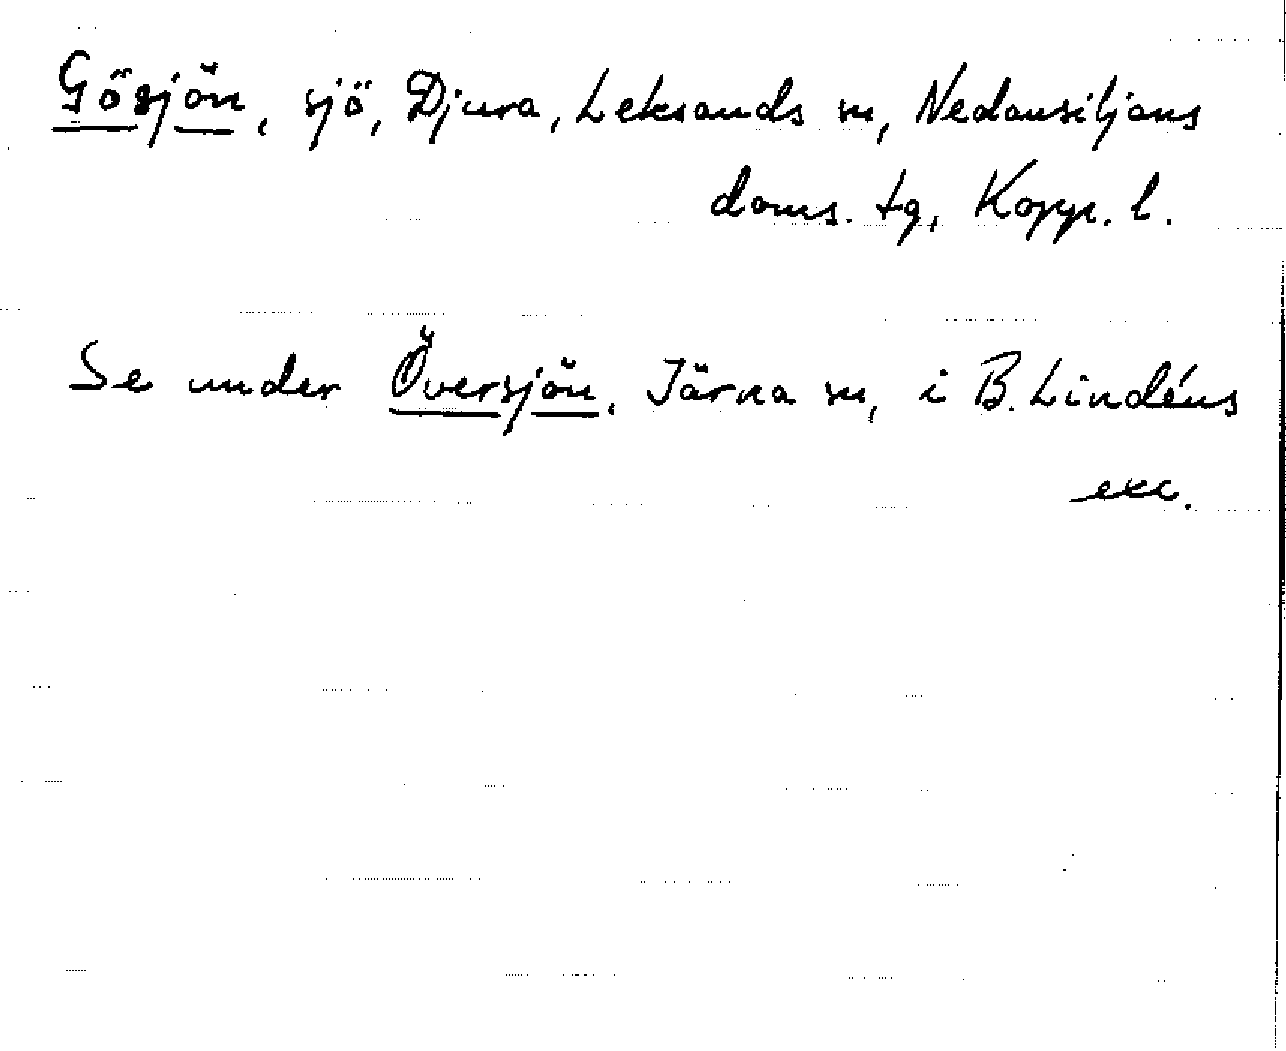 Gösjön, sjö, Djura, Leksands sn, Nedansiljans
doms. tg, Kopp. l.
Se under Översjön, Järna sn, i B. Lindéns
exc.